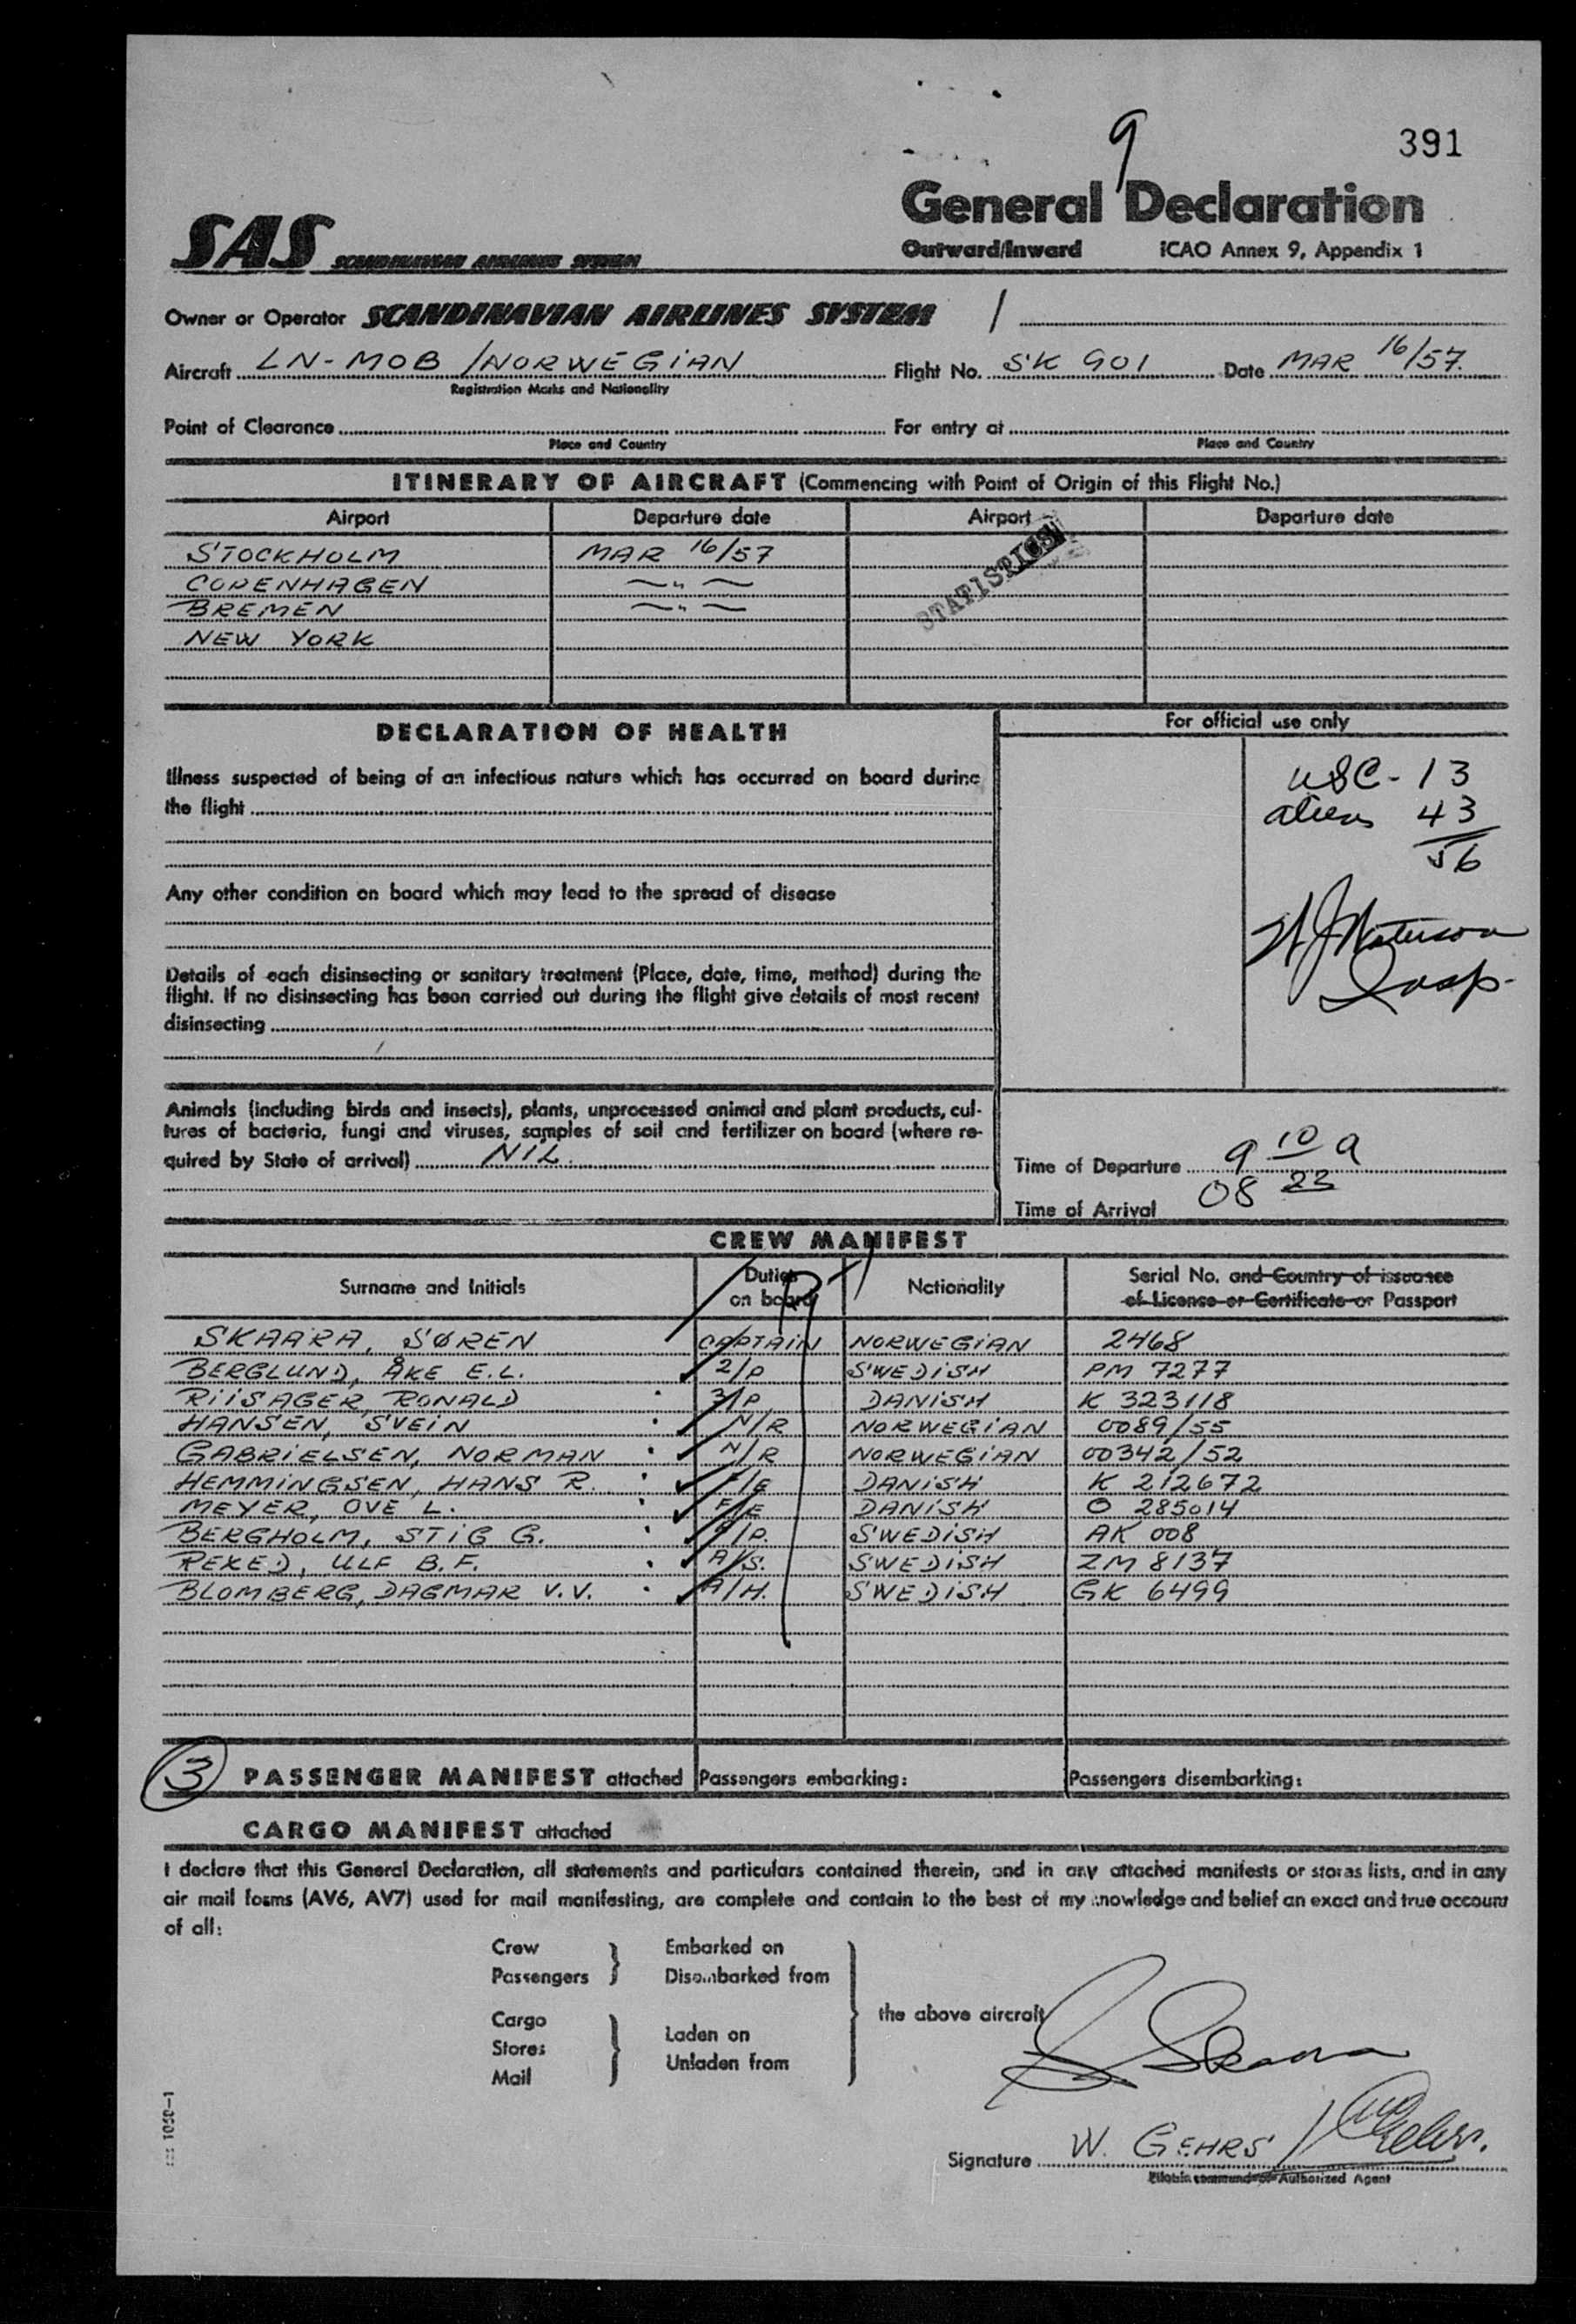 9
391
General Declaration
SAS SCANDINAVIAN AIRLINES SYSTEM
Outward/Inward ICAO Annex 9, Appendix 1
Owner or Operator SCANDINAVIAN AIRLINES SYSTEM /
Aircraft LN-MOB / NORWEGIAN Flight No. SK 901 Date MAR 16/57.
Registration Marks and Nationality
Point of Clearance For entry at
Place and Country Place and Country
ITINERARY OF AIRCRAFT (Commencing with Point of Origin of this Flight No.)
Airport Departure date Airport Departure date
STOCKHOLM MAR 16/57
COPENHAGEN —〃—
BREMEN —〃—
NEW YORK
STATISTICS
DECLARATION OF HEALTH
For official use only
Illness suspected of being of an infectious nature which has occurred on board during
the flight
USC - 13
aliens 43
56
Any other condition on board which may lead to the spread of disease
Insp.
Details of each disinsecting or sanitary treatment (Place, date, time, method) during the
flight. If no disinsecting has been carried out during the flight give details of most recent
disinsecting
Animals (including birds and insects), plants, unprocessed animal and plant products, cul-
tures of bacteria, fungi and viruses, samples of soil and fertilizer on board (where re-
quired by State of arrival) NIL.
Time of Departure 9 10 a
Time of Arrival 08 23
CREW MANIFEST
Surname and Initials Duties on board Nationality Serial No. and Country of issuance of Licence or Certificate or Passport
SKAARA, SØREN CAPTAIN NORWEGIAN 2468
BERGLUND, ÅKE E.L. 2/P SWEDISH PM 7277
RIISAGER, RONALD 3/P DANISH K 323118
HANSEN, SVEIN N/R NORWEGIAN 0089/55
GABRIELSEN, NORMAN N/R NORWEGIAN 00342/52
HEMMINGSEN, HANS R. F/E DANISH K 212672
MEYER, OVE L. F/E DANISH O 285014
BERGHOLM, STIG G. /P. SWEDISH AK 008
REXED, ULF B.F. A/S. SWEDISH ZM 8137
BLOMBERG, DAGMAR V.V. A/H. SWEDISH GK 6499
3 PASSENGER MANIFEST attached Passengers embarking: Passengers disembarking:
CARGO MANIFEST attached
I declare that this General Declaration, all statements and particulars contained therein, and in any attached manifests or stores lists, and in any
air mail forms (AV6, AV7) used for mail manifesting, are complete and contain to the best of my knowledge and belief an exact and true account
of all:
Crew Embarked on
Passengers Disembarked from
Cargo the above aircraft
Stores Laden on
Mail Unladen from
S Skaara
Signature W. GEHRS / W Gehrs.
Pilot in command or Authorized Agent
1050-1